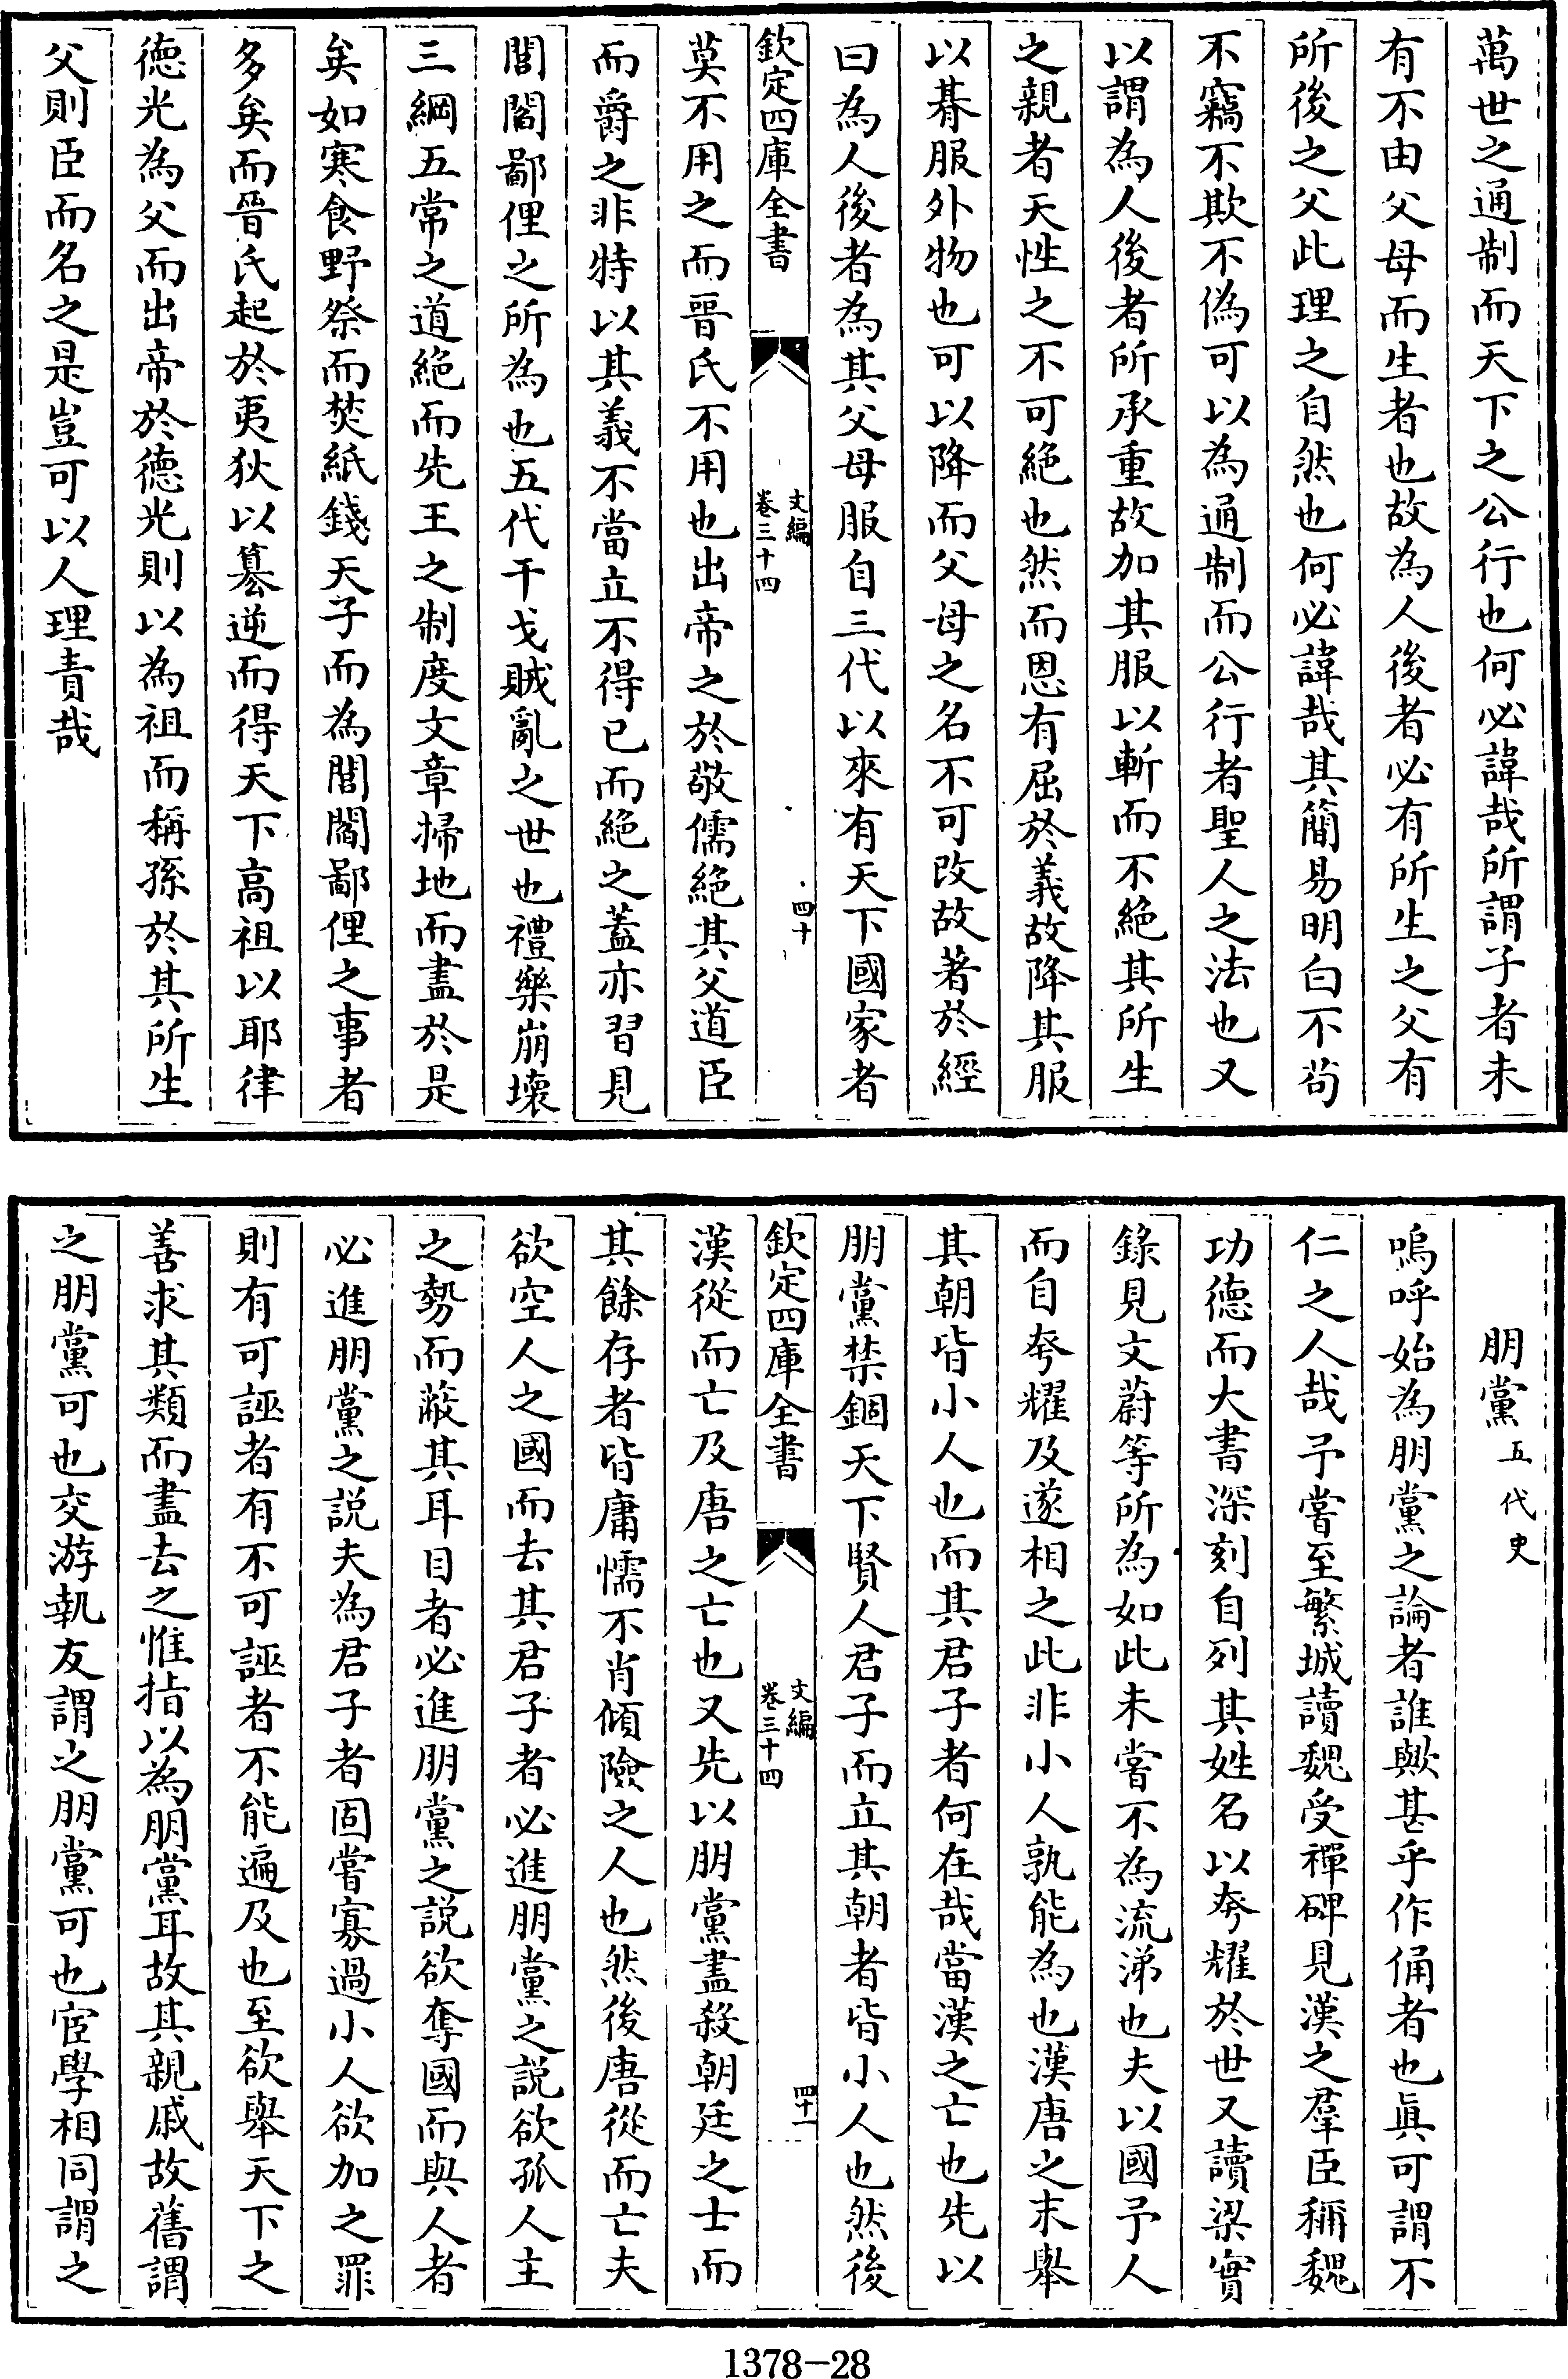 萬世之通制而天下之公行也何必諱哉所謂子者未
有不由父母而生者也故為人後者必有所生之父有
所後之父此理之自然也何必諱哉其簡易明白不茍
不竊不欺不偽可以為通制而公行者聖人之法也又
以謂為人後者所承重故加其服以斬而不絶其所生
之親者天性之不可絶也然而恩有屈於義故降其服
以朞服外物也可以降而父母之名不可改故著於經
曰為人後者為其父母服自三代以來有天下國家者
欽定四庫全書
文編
卷三十四
四十
莫不用之而晉氏不用也出帝之於敬儒絶其父道臣
而爵之非特以其義不當立不得已而絶之蓋亦習見
閭閻鄙俚之所為也五代干戈賊亂之世也禮樂崩壞
三綱五常之道絶而先王之制度文章掃地而盡於是
矣如寒食野祭而焚紙錢天子而為閭閻鄙俚之事者
多矣而晉氏起於夷狄以簒逆而得天下高祖以耶律
德光為父而出帝於德光則以為祖而稱孫於其所生
父則臣而名之是豈可以人理責哉
朋黨五代史
嗚呼始為朋黨之論者誰歟甚乎作俑者也眞可謂不
仁之人哉予嘗至繁城讀魏受禪碑見漢之羣臣稱魏
功德而大書深刻自列其姓名以夸耀於世又讀梁實
錄見文蔚等所為如此未嘗不為流涕也夫以國予人
而自夸耀及遂相之此非小人孰能為也漢唐之末舉
其朝皆小人也而其君子者何在哉當漢之亡也先以
朋黨禁錮天下賢人君子而立其朝者皆小人也然後
欽定四庫全書
文編
卷三十四
四十一
漢從而亡及唐之亡也又先以朋黨盡殺朝廷之士而
其餘存者皆庸懦不肖傾險之人也然後唐從而亡夫
欲空人之國而去其君子者必進朋黨之説欲孤人主
之勢而蔽其耳目者必進朋黨之説欲奪國而與人者
必進朋黨之説夫為君子者固嘗寡過小人欲加之罪
則有可誣者有不可誣者不能遍及也至欲舉天下之
善求其類而盡去之惟指以為朋黨耳故其親戚故舊謂
之朋黨可也交游執友謂之朋黨可也宦學相同謂之
1378-28